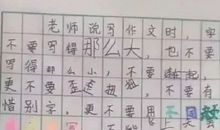 老师说写作文时，字
不要写得那么大，也不要
写得那么小，不要
更不要歪歪扭扭，不要有
错别字，更不要用